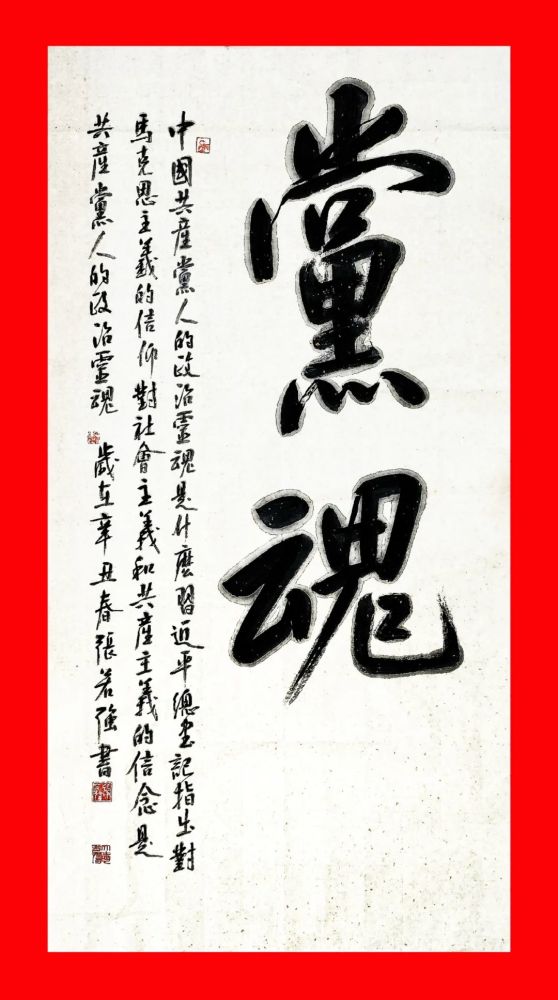 黨魂
中國共産黨人的政治靈魂是什麽習近平總書記指出對
馬克思主義的信仰對社會主義和共産主義的信念是
共産黨人的政治靈魂
歲在辛丑春張若強書